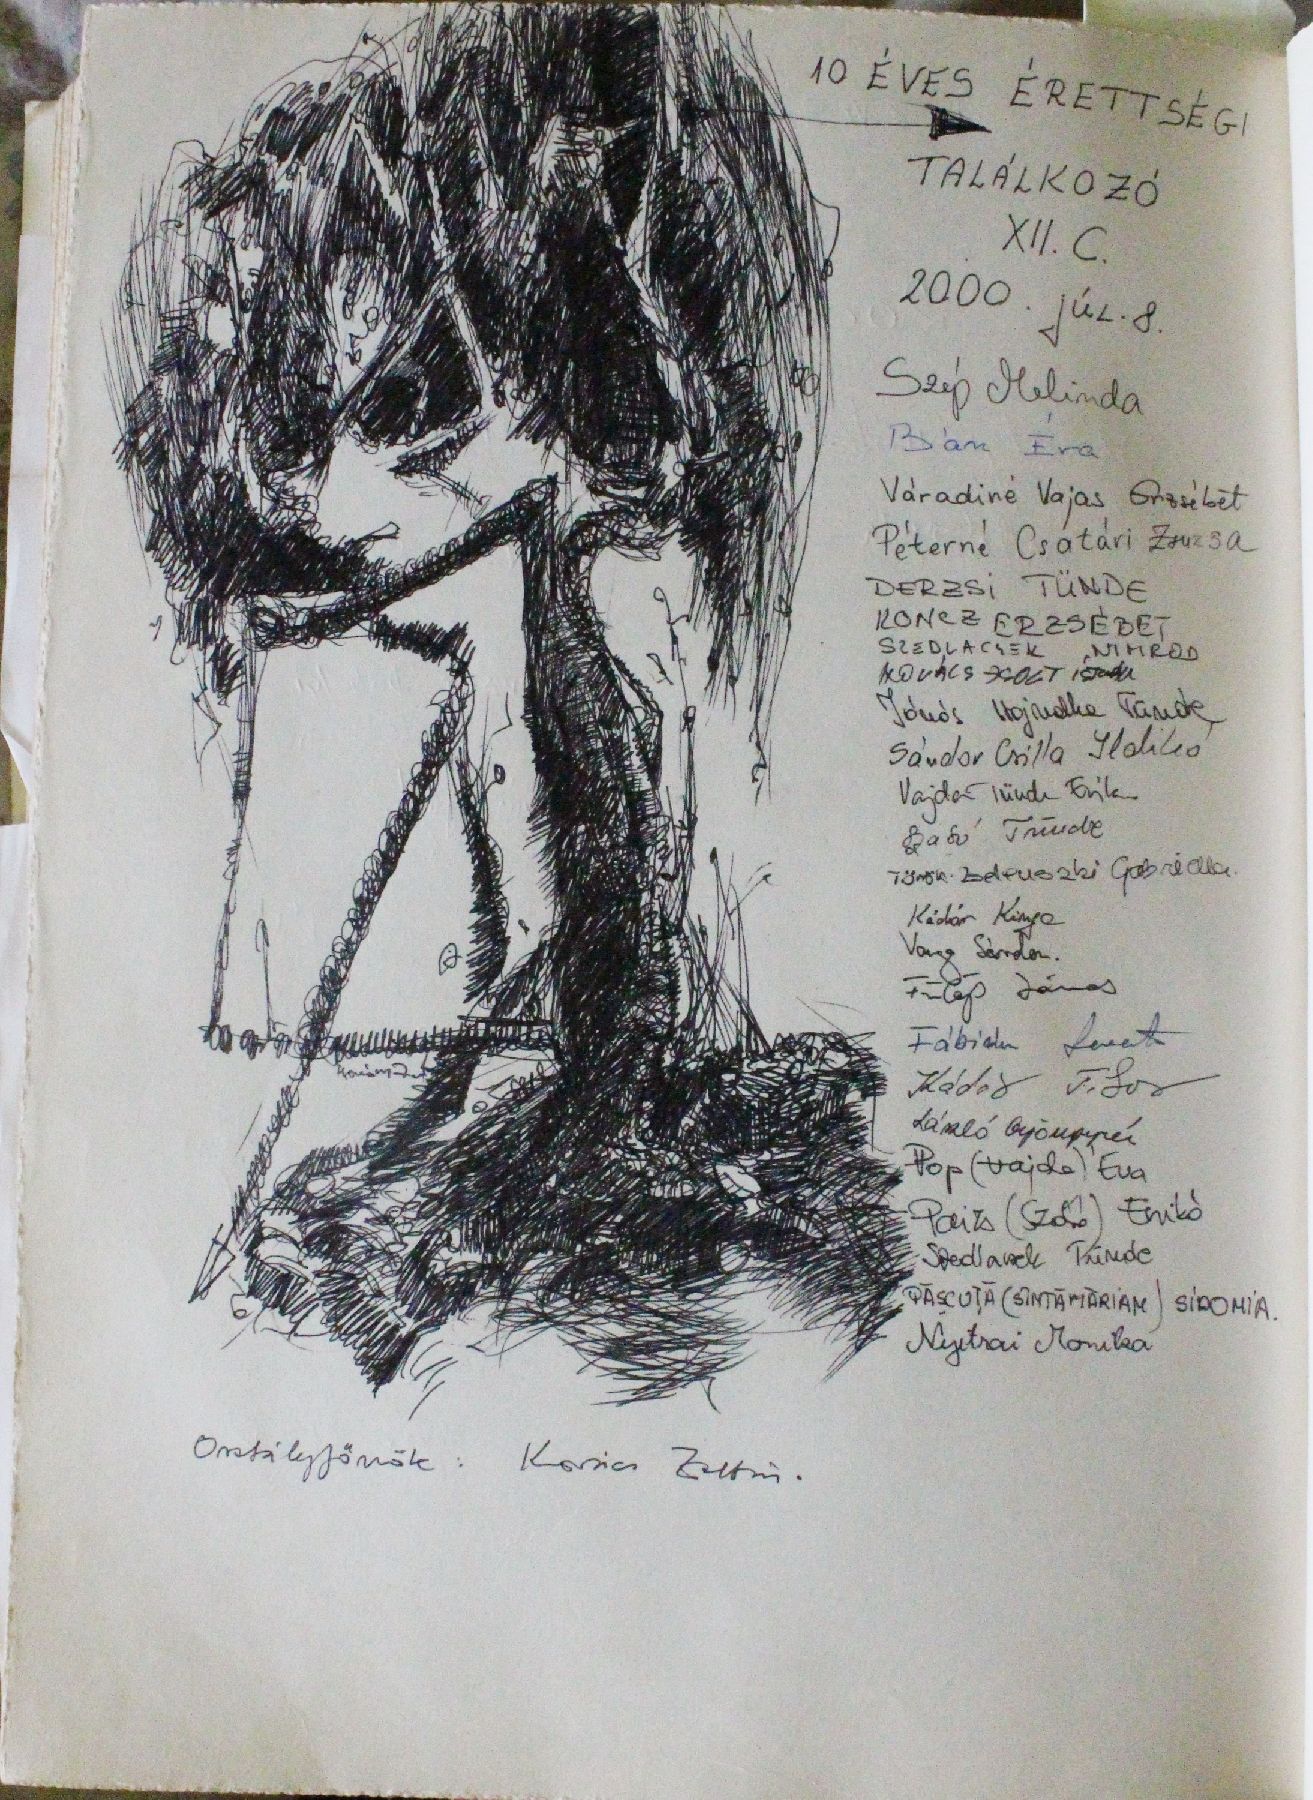 10 ÉVES ÉRETTSÉGI
TALÁLKOZÓ
XII. C.
2000. júl. 8.
Szép Melinda
Bán Éva
Váradiné Vajas Erzsébet
Péterné Csatári Zsuzsa
DERZSI TÜNDE
KONCZ ERZSÉBET
SZEDLACSEK NIMROD
KOVÁCS ZSOLT
Jónás Tünde
Sándor Csilla Ildikó
Vajda Tünde Erika
Szabó Tünde
Török Gabriella
Kádár Kinga
Varg Sándor.
Fülöp János
Fábián
Kádár Tibor
László Gyöngyvér
Pop (Vajda) Éva
(Szabó) Enikő
Szedlacsek Tünde
PĂȘCUȚĂ (SÎNTĂMĂRIAN) SIDONIA.
Nyitrai Monika
Osztályfőnök: Kovács Zoltán.